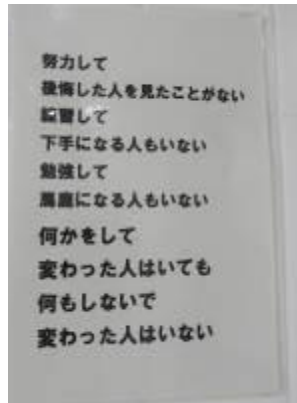 努力して
後悔した人を見たことがない
練習して
下手になる人もいない
勉強して
馬鹿になる人もいない
何かをして
変わった人はいても
何もしないで
変わった人はいない